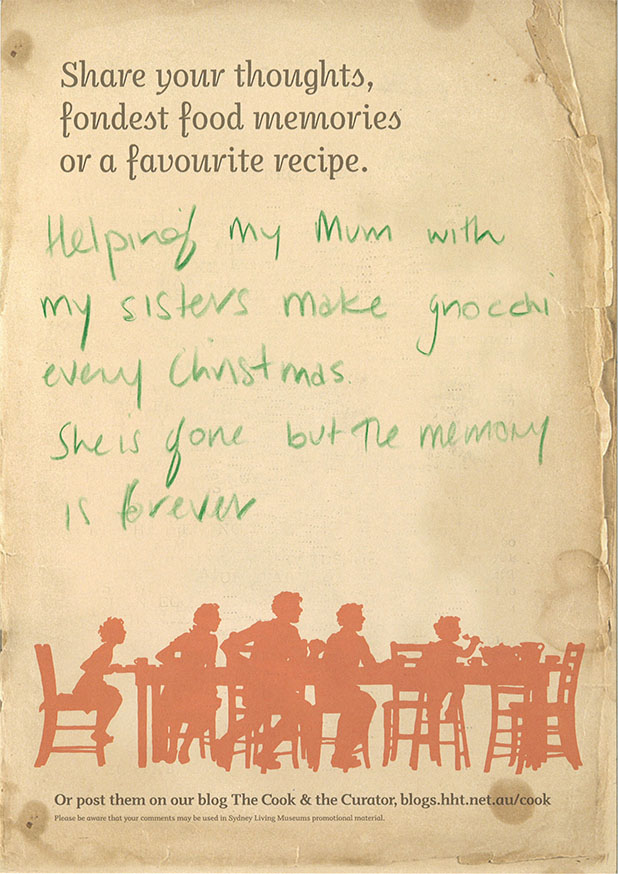 Share your thoughts,
fondest food memories
or a favourite recipe.
Helping my Mum with
my sisters make gnocchi
every Christmas.
She is gone but the memory
is forever
Or post them on our blog The Cook & the Curator, blogs.hht.net.au/cook
Please be aware that your comments may be used in Sydney Living Museums promotional material.